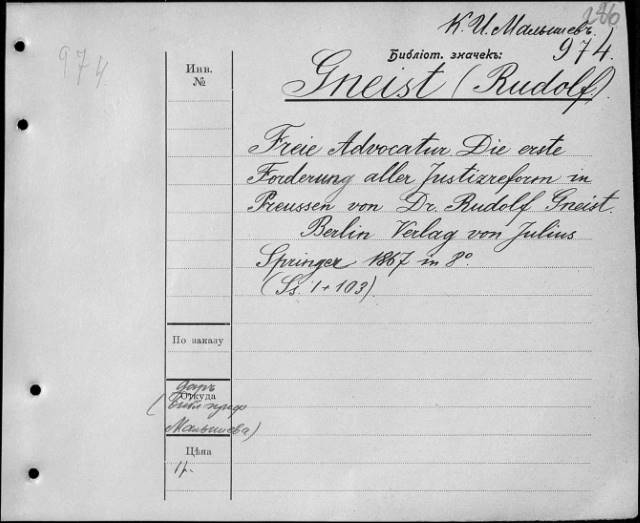 286
К. И. Малышевъ.
974
Библіот. значекъ:
974.
Инв.
№
Gneist (Rudolf).
Freie Advocatur Die erste
Forderung aller Justizreform in
Preussen von Dr. Rudolf Gneist.
Berlin Verlag von Julius
Springer 1867 in 8º.
(Ss. 1+103).
По заказу
Даръ
Откуда
(Библ проф
Малышева)
Цѣна
1р.